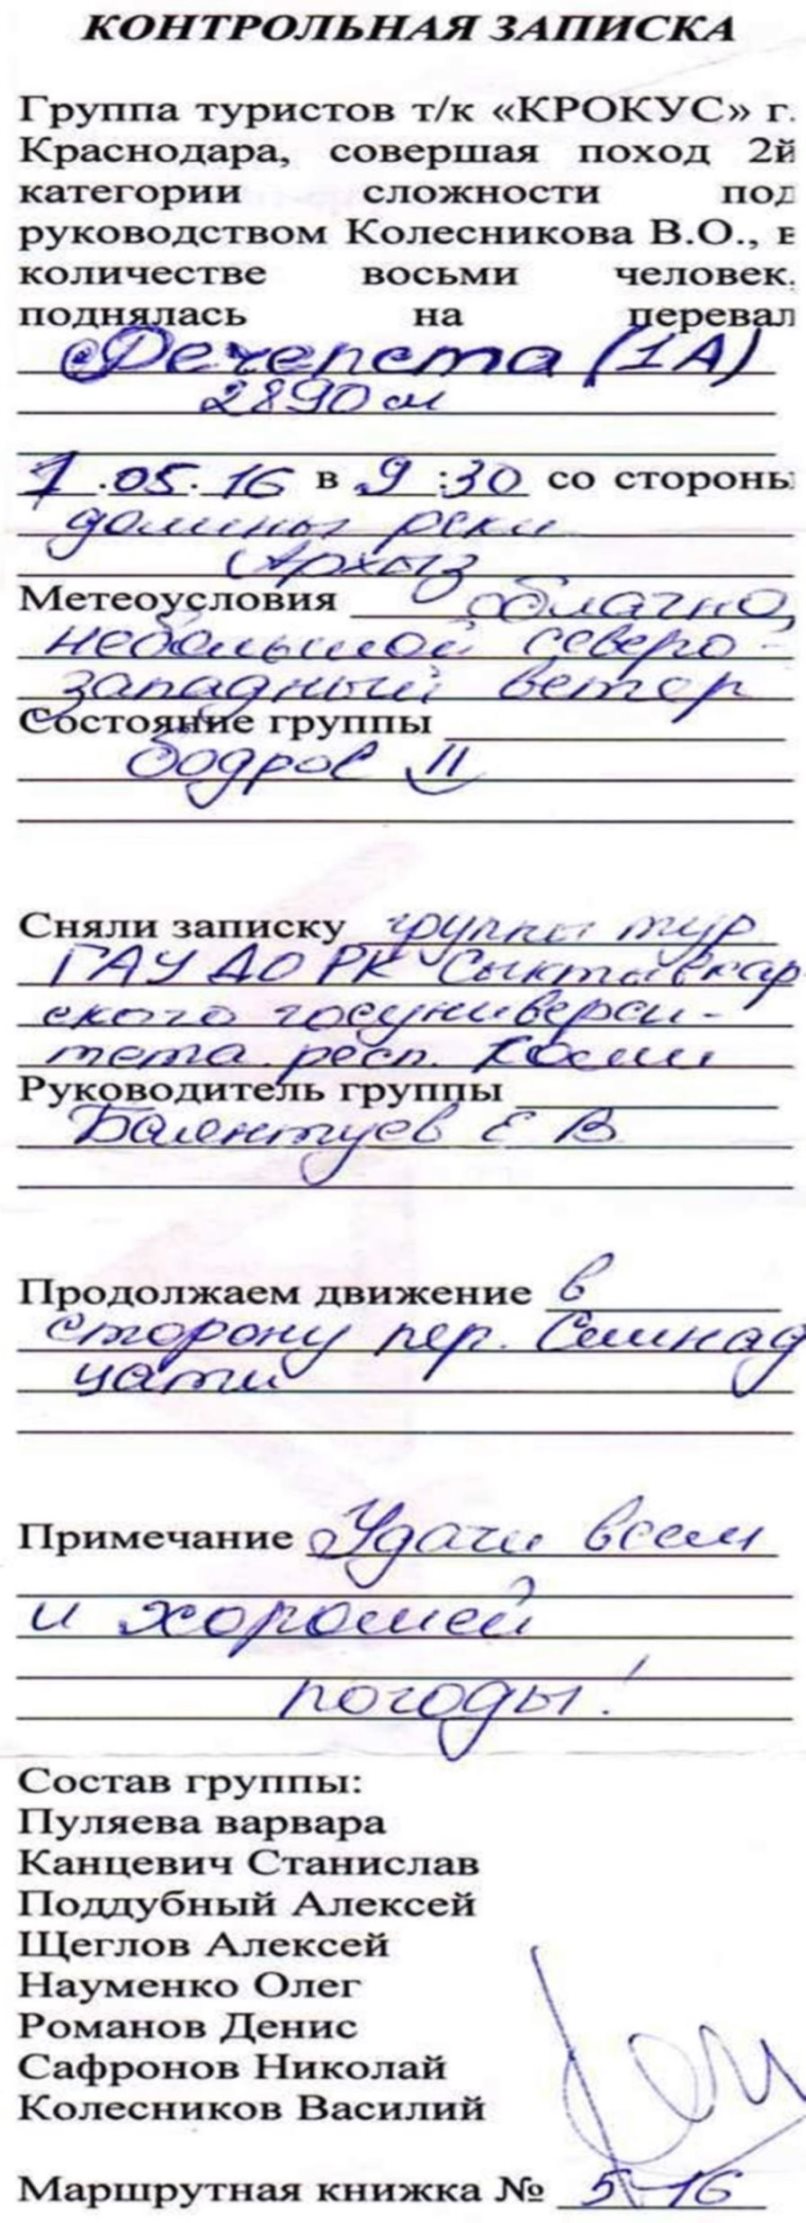 КОНТРОЛЬНАЯ ЗАПИСКА
Группа туристов т/к «КРОКУС» г.
Краснодара, совершая поход 2й
категории сложности под
руководством Колесникова В.О., в
количестве восьми человек,
поднялась на перевал
Речепста (1А)
2890 м
7.05.16 в 9:30 со стороны
долины реки
Архыз
Метеоусловия облачно,
небольшой северо-
западный ветер
Состояние группы
бодрое
Сняли записку группы тур
ГАУ ДО РК Сыктывкар
ского госуниверси-
тета респ. Коми
Руководитель группы
Е В
Продолжаем движение в
сторону пер. Семнад
цати
Примечание Удачи всем
и хорошей
погоды!
Состав группы:
Пуляева варвара
Канцевич Станислав
Поддубный Алексей
Щеглов Алексей
Науменко Олег
Романов Денис
Сафронов Николай
Колесников Василий
Маршрутная книжка № 5-16